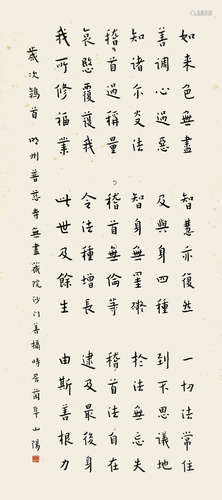 如来色無盡　智慧亦復然　一切法常住
善調心過惡　及與身四種　到不思議地
知諸尒炎法　智身無罣礙　於法無忘失
稽首過稱量　稽首無倫等　稽首法自在
哀愍覆護我　令法種增長　逮及最後身
我所修福業　此世及餘生　由斯善根力
歲次鶉首　明州善慈寺無盡藏院沙門善橘時居蘭阜山陽